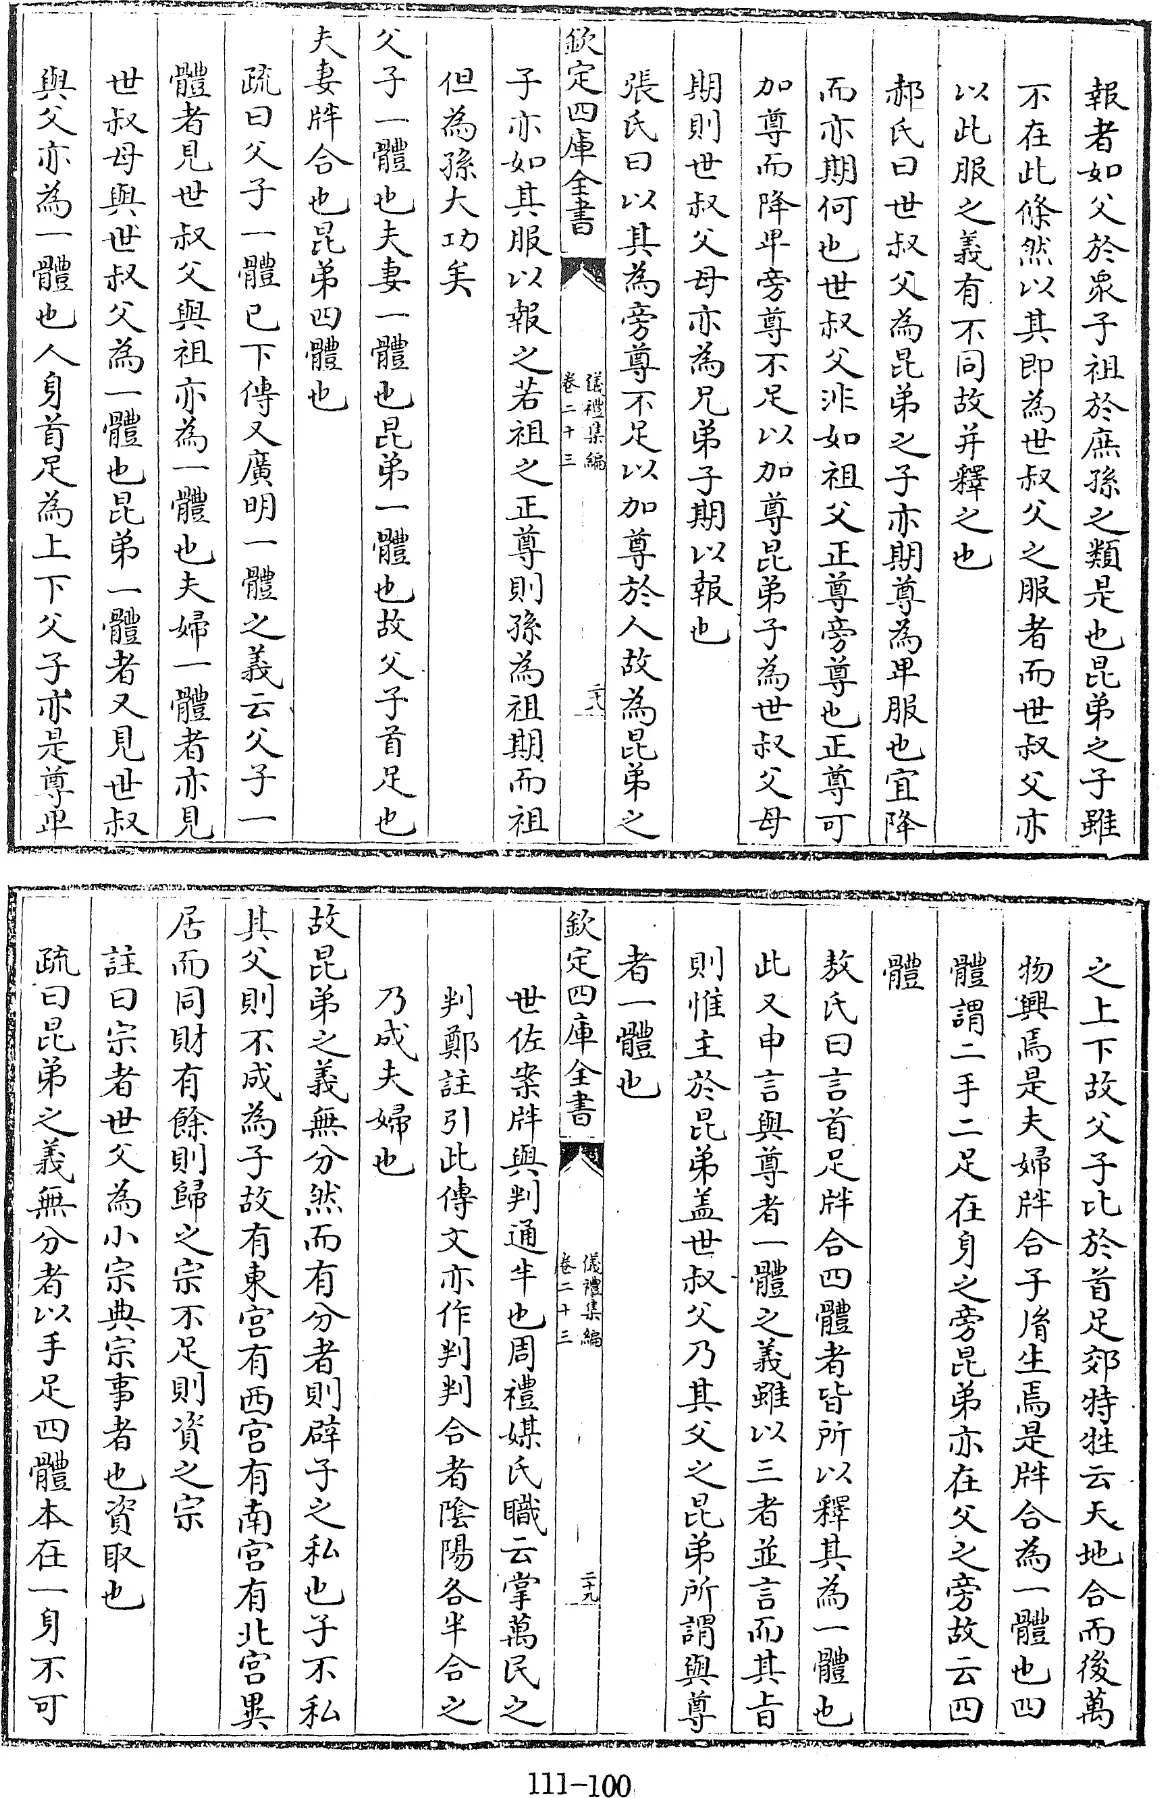 報者如父於衆子祖於庶孫之類是也昆弟之子雖
不在此條然以其即為世叔父之服者而世叔父亦
以此服之義有不同故并釋之也
郝氏曰世叔父為昆弟之子亦期尊為卑服也宜降
而亦期何也世叔父非如祖父正尊旁尊也正尊可
加尊而降卑旁尊不足以加尊昆弟子為世叔父母
期則世叔父母亦為兄弟子期以報也
張氏曰以其為旁尊不足以加尊於人故為昆弟之
欽定四庫全書
儀禮集編
卷二十三
二十八
子亦如其服以報之若祖之正尊則孫為祖期而祖
但為孫大功矣
父子一體也夫妻一體也昆弟一體也故父子首足也
夫妻牉合也昆弟四體也
疏曰父子一體已下傳又廣明一體之義云父子一
體者見世叔父與祖亦為一體也夫婦一體者亦見
世叔母與世叔父為一體也昆弟一體者又見世叔
與父亦為一體也人身首足為上下父子亦是尊卑
之上下故父子比於首足郊特牲云天地合而後萬
物興焉是夫婦牉合子胤生焉是牉合為一體也四
體謂二手二足在身之旁昆弟亦在父之旁故云四
體
敖氏曰言首足牉合四體者皆所以釋其為一體也
此又申言與尊者一體之義雖以三者並言而其旨
則惟主於昆弟蓋世叔父乃其父之昆弟所謂與尊
者一體也
欽定四庫全書
儀禮集編
卷二十三
二十九
世佐案牉與判通半也周禮媒氏職云掌萬民之
判鄭註引此傳文亦作判判合者陰陽各半合之
乃成夫婦也
故昆弟之義無分然而有分者則辟子之私也子不私
其父則不成為子故有東宮有西宮有南宮有北宮異
居而同財有餘則歸之宗不足則資之宗
註曰宗者世父為小宗典宗事者也資取也
疏曰昆弟之義無分者以手足四體本在一身不可
111-100